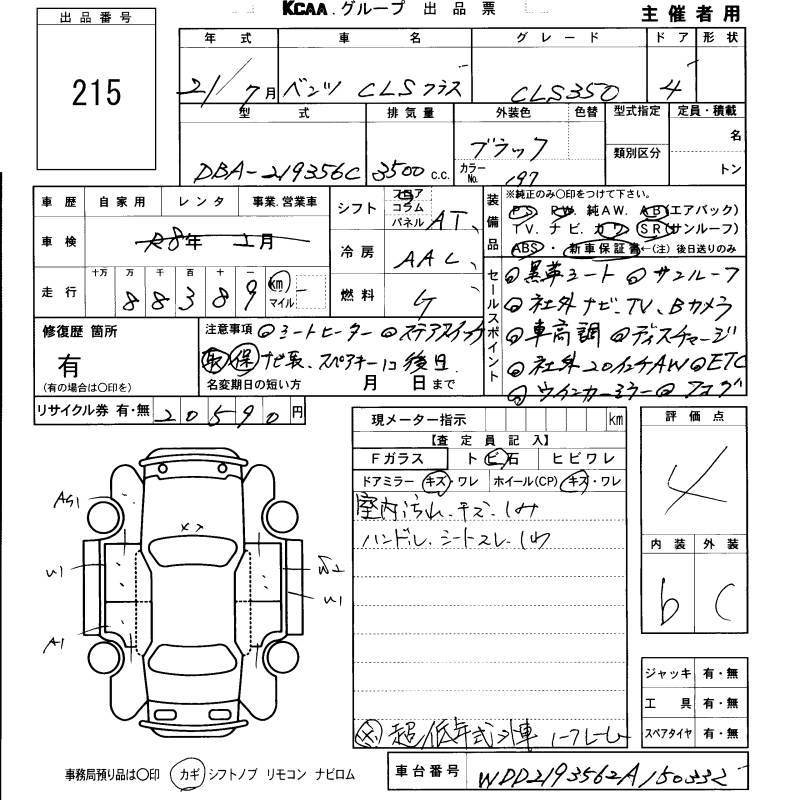 KCAA.グループ 出品票
主催者用
出品番号
215
年式 車名 グレード ドア 形状
21/7月 ベンツ CLSクラス CLS350 4
型式 排気量 外装色 色替 型式指定 定員・積載
DBA-219356C 3500c.c. ブラック 類別区分 名
カラーNo. 197 トン
車歴 自家用 レンタ 事業.営業車
車検 R8年 月
走行 十万 万 千 百 十 一 km マイル
88389
シフト フロア コラム パネル AT
冷房 AAC
燃料 G
装備品
※純正のみ○印をつけて下さい。
PS PW. 純AW. AB(エアバック)
TV. ナビ. カワ SR(サンルーフ)
ABS・新車保証書←(注)後日送りのみ
セールスポイント
◎黒革シート ◎サンルーフ
◎社外ナビ、TV、Bカメラ
◎車高調 ◎ディスチャージ
◎社外20インチAW ◎ETC
◎ウインカーミラー ◎フォグ
修復歴 箇所
有
(有の場合は○印を)
注意事項 ◎シートヒーター ◎ステアスイッチ
取 保 ナビ表、スペアキー1コ後日
名変期日の短い方 月 日まで
リサイクル券 有・無 20590円
現メーター指示 km
【査定員記入】
Fガラス トビ石 ヒビワレ
ドアミラー キズ・ワレ ホイール(CP) キズ・ワレ
室内汚れ、キズ、シミ
ハンドル、シートスレ、シワ
評価点
4
内装 外装
b C
AG1
U1
A1
U1
XX
ジャッキ 有・無
工具 有・無
スペアタイヤ 有・無
超低年式列車
事務局預り品は○印 カギ シフトノブ リモコン ナビロム
車台番号 WDD2193562A150332